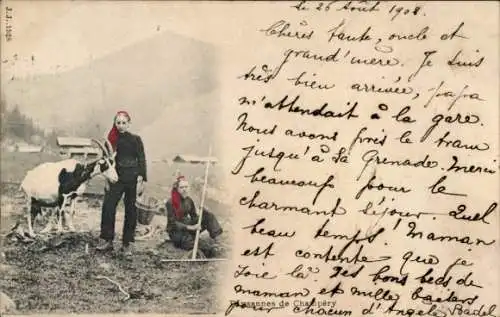 J.J. 1528
le 26 Août 1902.
Chères tante, oncle et
grand'mère. Je suis
très bien arrivée, papa
m'attendait à la gare.
Nous avons pris le tram
jusqu'à la Grenade. Merci
beaucoup pour le
charmant séjour. Quel
beau temps. Maman
est contente que je
soie là. Des bons becs de
maman et mille baisers
pour chacun d'Angèle Badel
Paysannes de Champéry